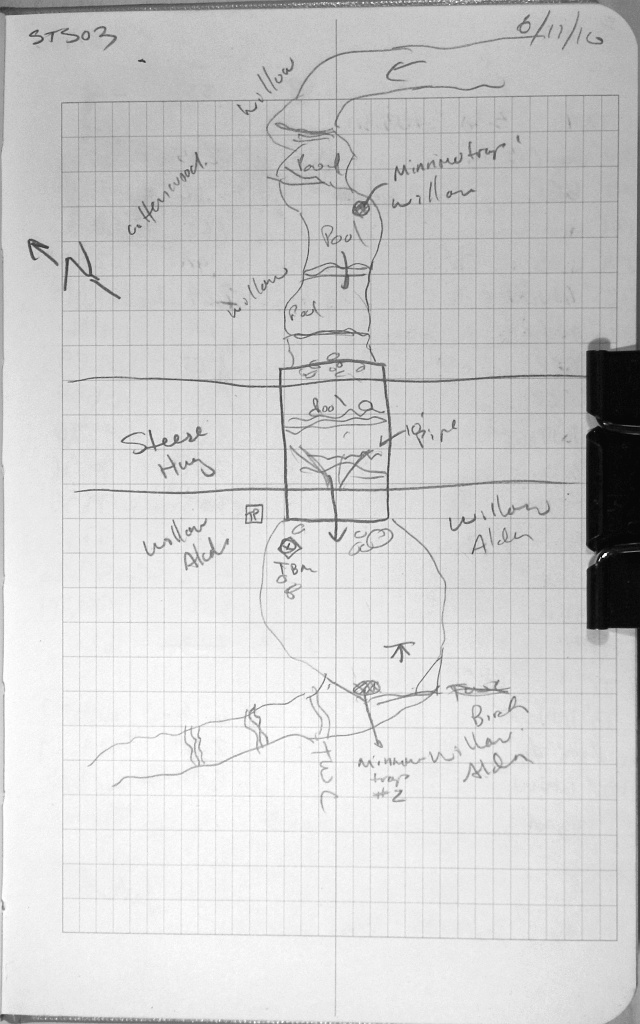 STS03
6/11/10
Willow
Pool
Minnow trap 1
Willow
cottonwood
N
Pool
Willow
Pool
Steese
Hwy
Pipe
TP
Willow
Ald
Willow
Alder
TBM
TWC
Birch
Willow
Alder
Minnow
trap
#2